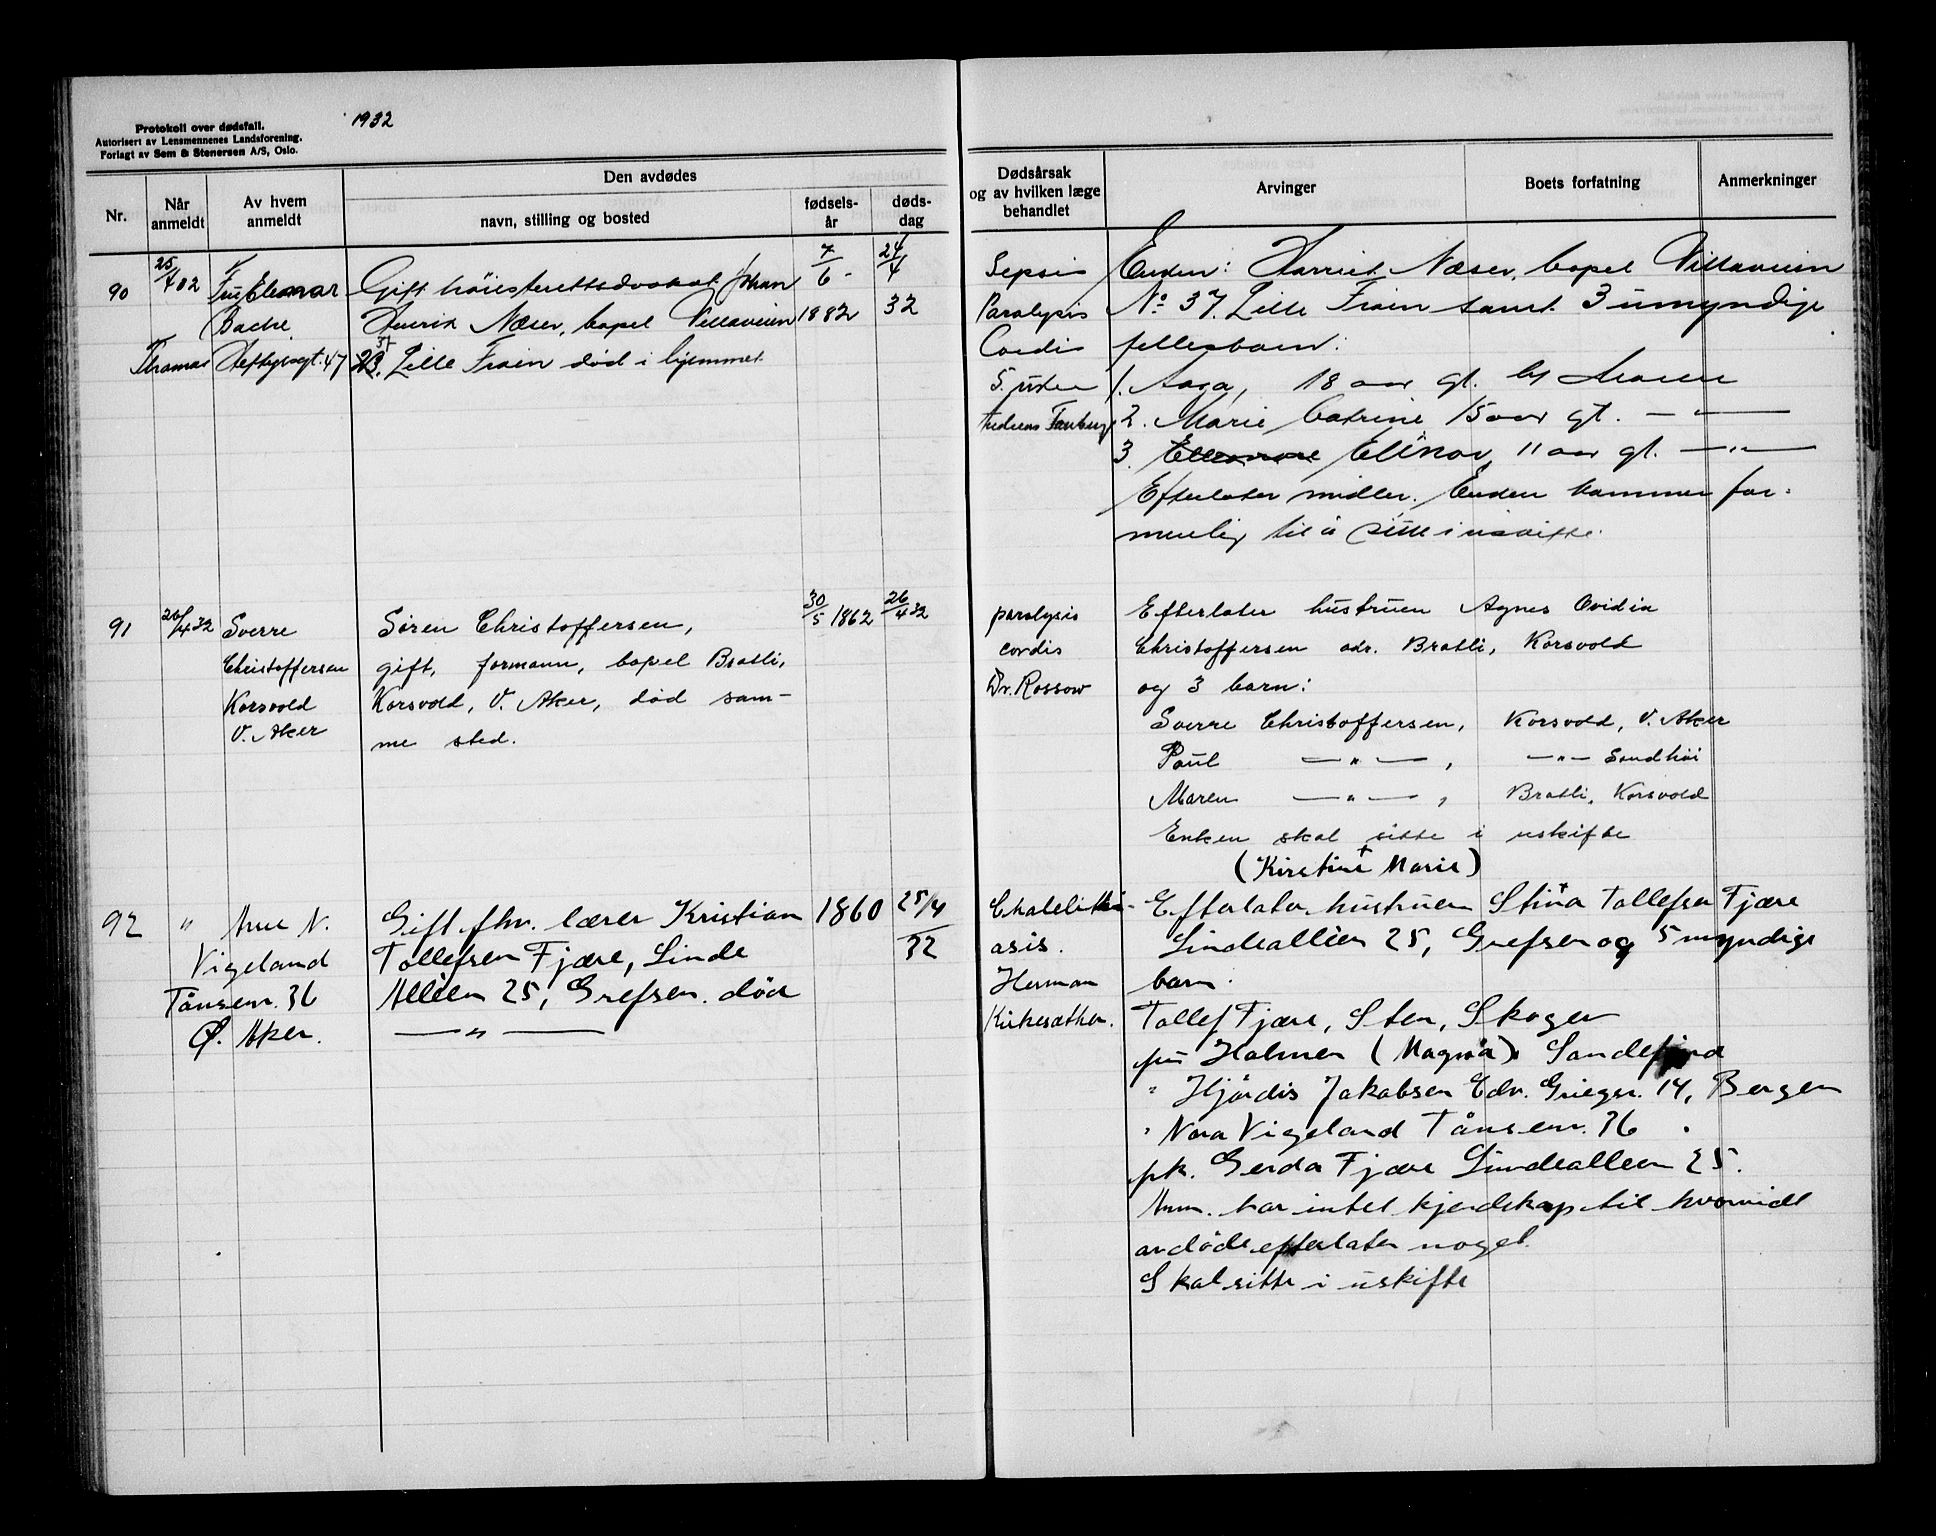 1932
Protokoll over dødsfall.
Autorisert av Lensmennenes Landsforening.
Forlagt av Sem & Stenersen A/S, Oslo.
Nr.
Når anmeldt
Av hvem anmeldt
Den avdødes
navn, stilling og bosted
fødselsår
dødsdag
Dødsårsak og av hvilken læge behandlet
Arvinger
Boets forfatning
Anmerkninger
90
25/4 02
Fru Elenar
Bache
Thomas Heftyesgt. 47
Gift höiesterettsadvokat Johan
Henrik Næser, bopel Villaveien
37 Lille Frøen död i hjemmet
7/6 - 1882
24/4 32
Sepsis
Paralysis
Cordis
Enken: Harriet Næser, bopel Villaveien
No 37 Lille Frøen samt 3 umyndige
fellesbarn:
1. Aaga, 18 aar gl. hj moren
2. Marie Catrine 15 aar gl. — " —
3. Ellinor, 11 aar gl. — " —
Efterlater midler. Enken kommer for-
mentlig til å sitte i uskifte.
91
26/4 32
Sverre
Christoffersen
Korsvold
V. Aker
Sören Christoffersen,
gift, formann, bopel Bratli,
Korsvold, V. Aker, död sam-
me sted.
30/5 1862
26/4 32
paralysis
cordis
Dr. Rossow
Efterlater hustruen Agnes Ovidia
Christoffersen adr. Bratli, Korsvold
og 3 barn:
Sverre Christoffersen, Korsvold, V. Aker
Paul — " — , — " — Sandhöi
Maren — " — , Bratli, Korsvold
Enken skal sitte i uskifte
(Kirstine Marie)
92
"
Arne N.
Vigeland
Tånsenv. 36
Ø. Aker.
Gift fhv. lærer Kristian
Tollefsen Fjære, Linde
Alléen 25, Grefsen. död
— " —
1860
25/4 32
Cholelithi-
asis.
Herman
Kirkesæther.
Efterlater hustruen Stina Tollefsen Fjære
Lindealléen 25, Grefsen og 5 myndige
barn.
Tollef Fjære, Sten, Skoger
fru Holmen (Magna) Sandefjord
" Hjördis Jakobsen Edv. Griegsv. 14, Bergen
" Nora Vigeland Tånsenv. 36 .
frk. Gerda Fjære Lindealleen 25.
Anm. har intet kjendskap til hvorvidt
avdöde efterlater noget.
Skal sitte i uskifte